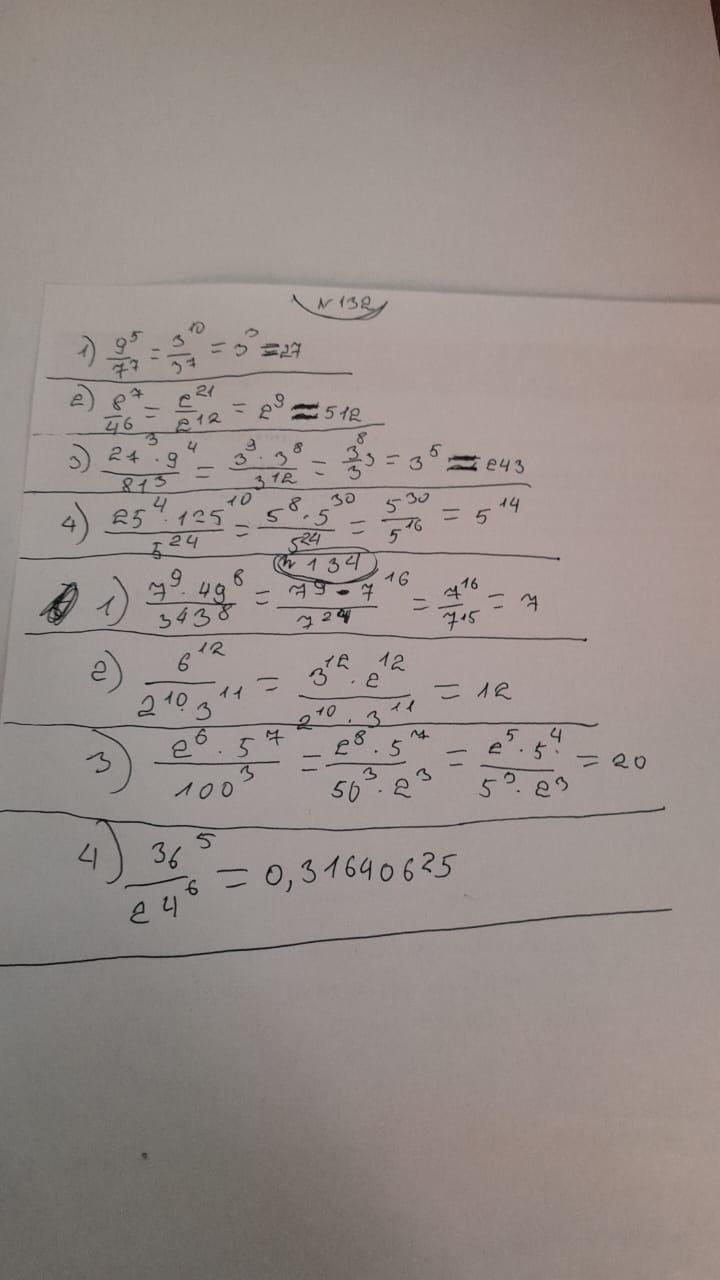 N 132
1) 9^5/7^7 = 3^10/3^7 = 3^3 = 27
2) 8^7/4^6 = 2^21/2^12 = 2^9 = 512
3) 27^3 · 9^4/81^3 = 3^9 · 3^8/3^12 = 3^8/3^3 = 3^5 = 243
4) 25^4 · 125^10/5^24 = 5^8 · 5^30/5^24 = 5^30/5^16 = 5^14
N 134
1) 7^9 · 49^8/343^8 = 7^9 · 7^16/7^24 = 7^16/7^15 = 7
2) 6^12/2^10 · 3^11 = 3^12 · 2^12/2^10 · 3^11 = 12
3) 2^6 · 5^7/100^3 = 2^8 · 5^7/50^3 · 2^3 = 2^5 · 5^4/5^3 · 2^3 = 20
4) 36^5/24^6 = 0,31640625